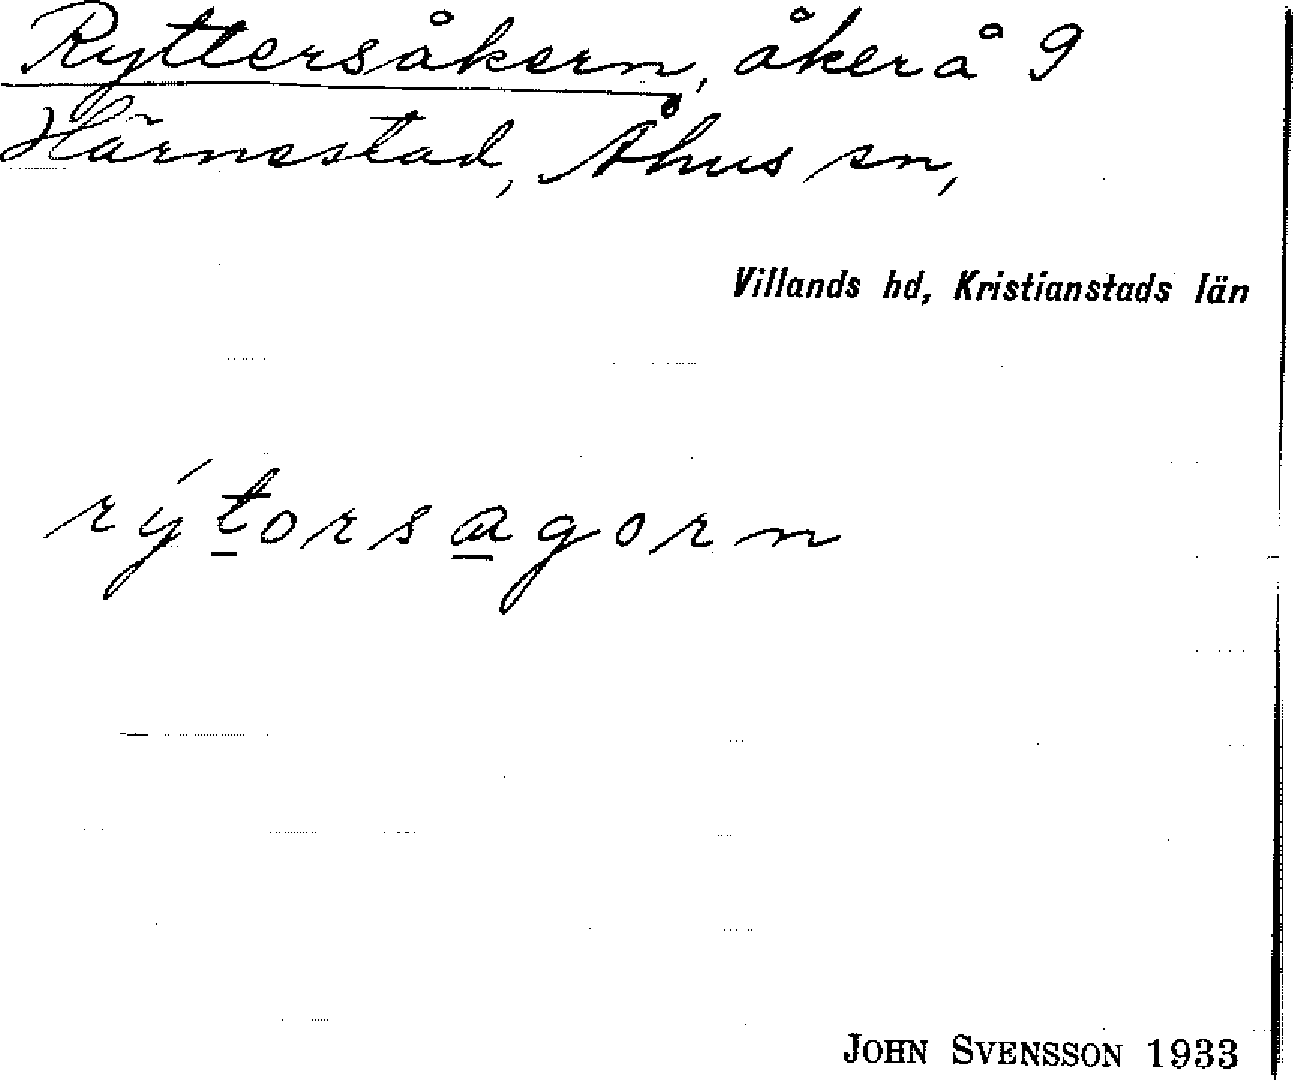 Ryttersåkern, åker å 9
Härnestad, Åhus sn,
Villands hd, Kristianstads län
rýtorsagorn
JOHN SVENSSON 1933